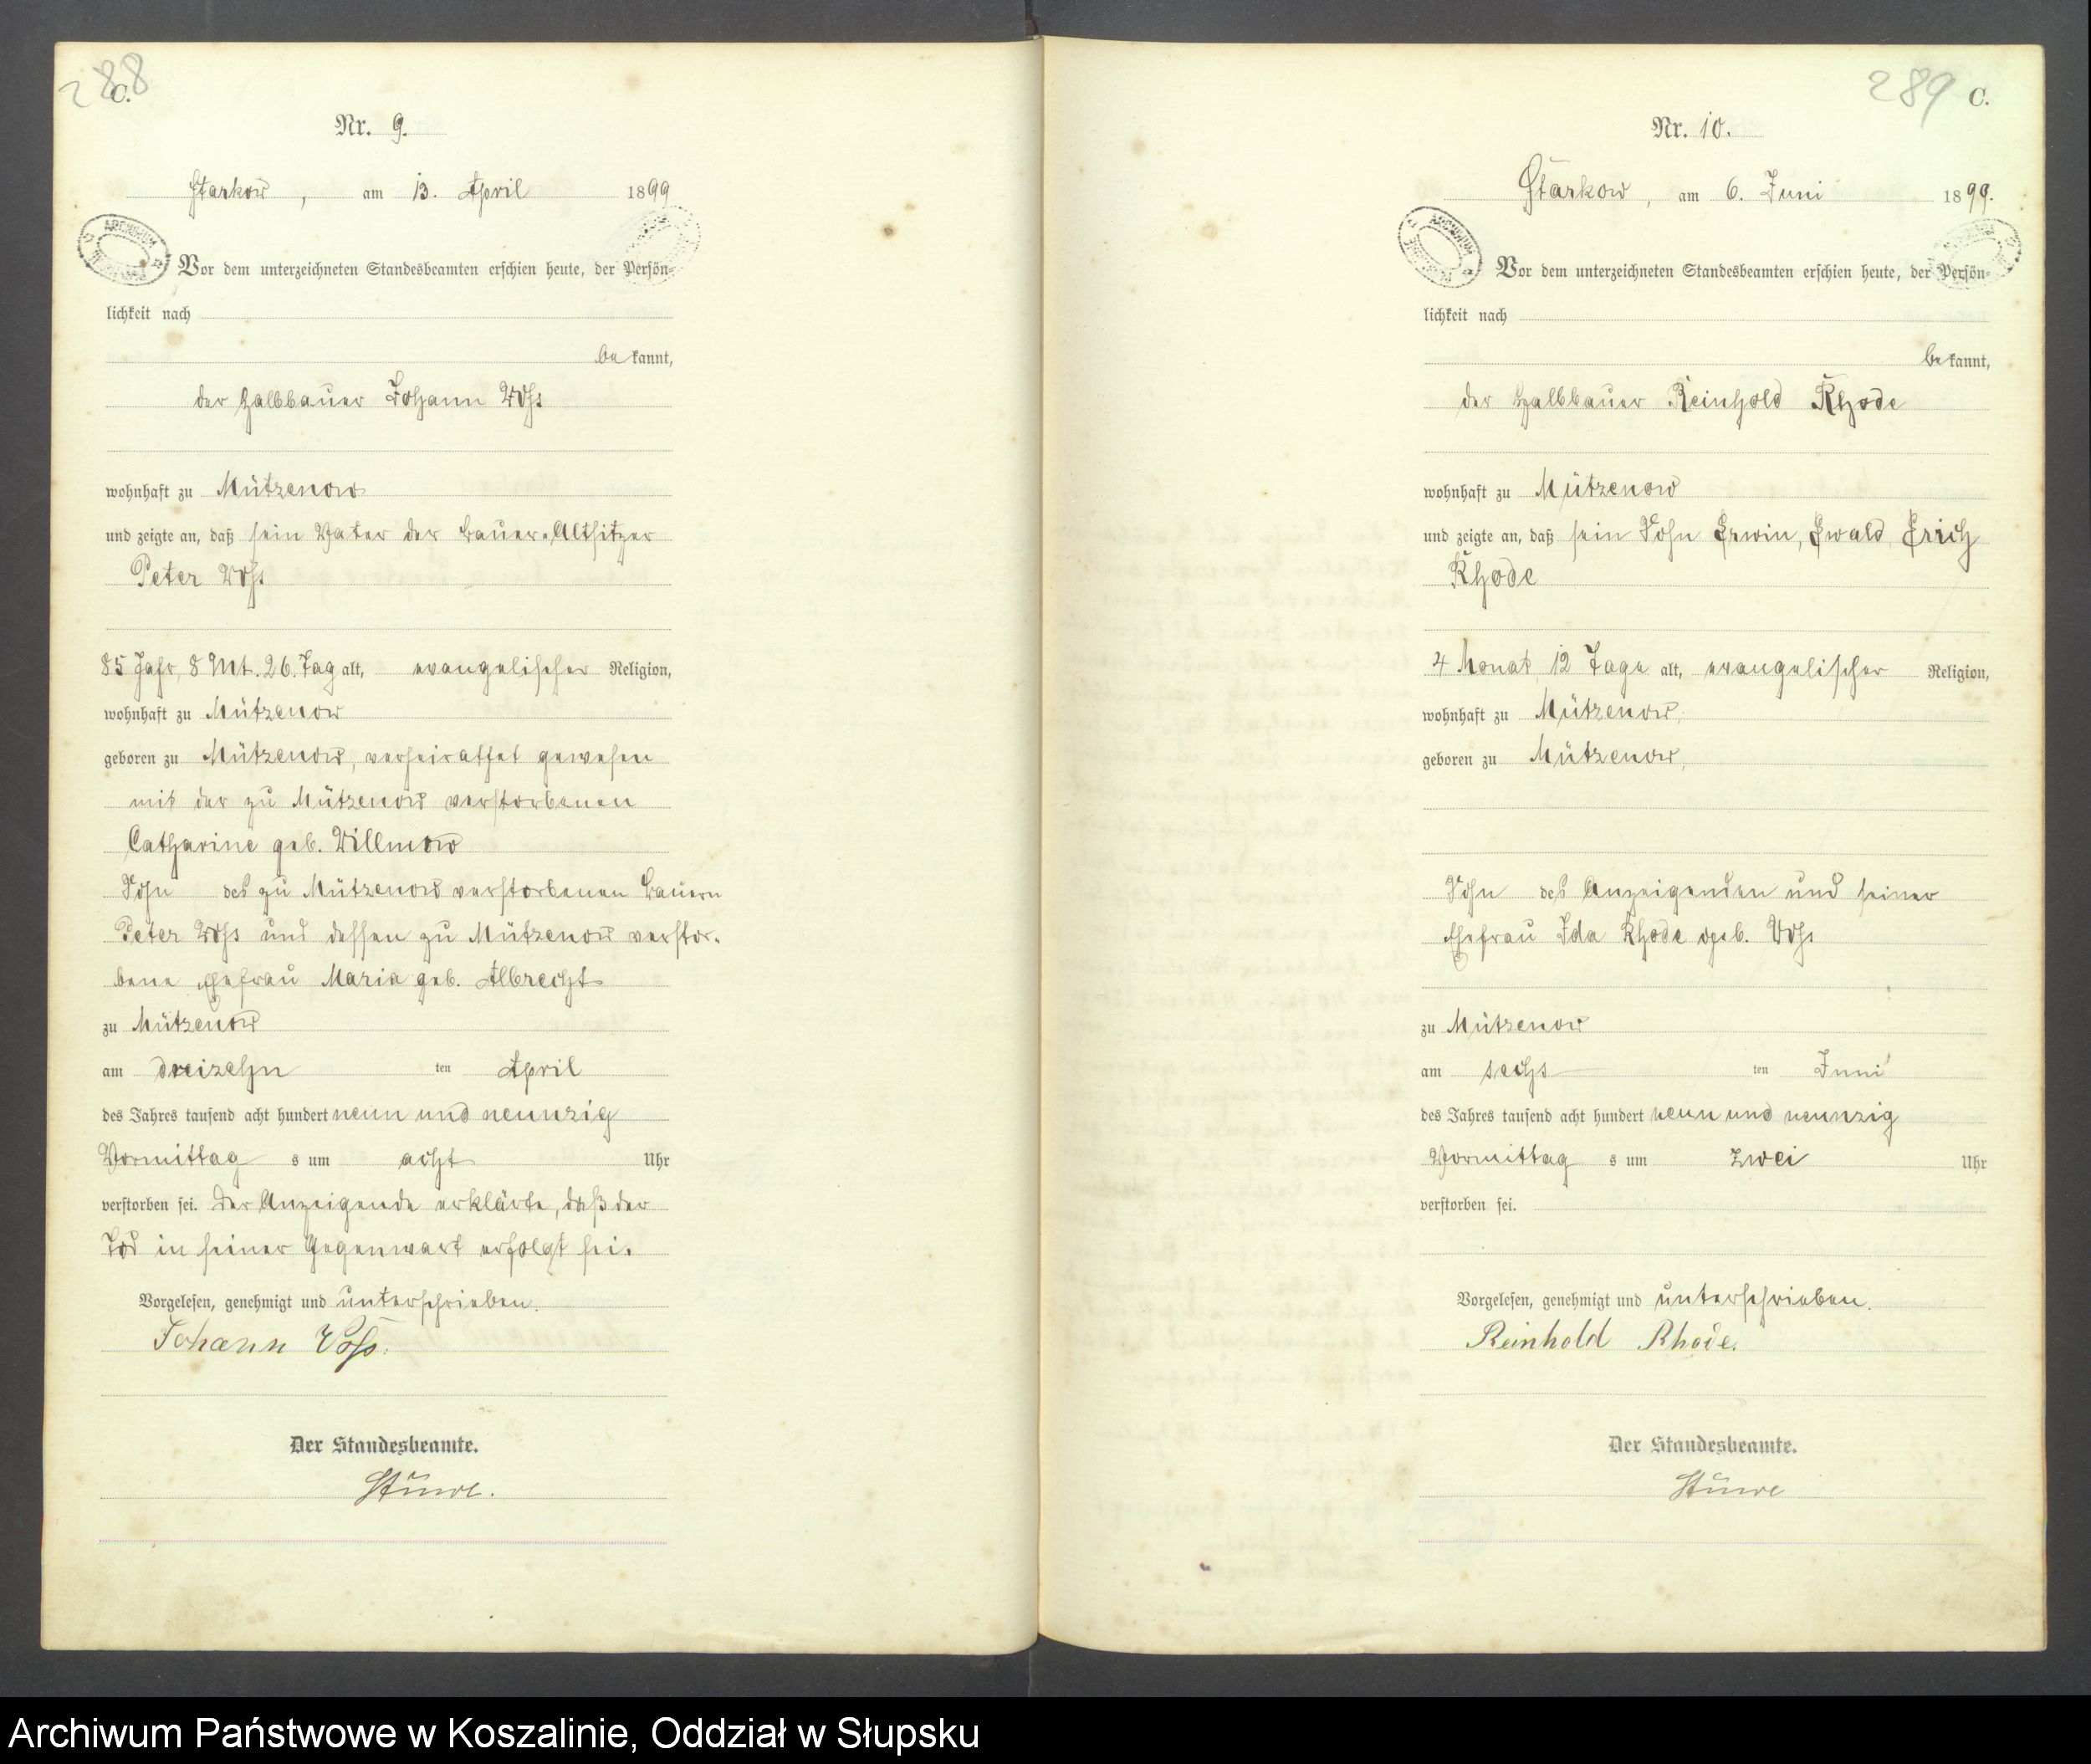 288
C.
Nr. 9.
Starkow, am 13. April 1899
Vor dem unterzeichneten Standesbeamten erschien heute, der Persön-
lichkeit nach
be kannt,
der Halbbauer Johann Voß
wohnhaft zu Mützenow
und zeigte an, daß sein Vater der Bauer-Altsitzer
Peter Voß
85 Jahr, 8 Mt. 26. Tag alt, evangelischer Religion,
wohnhaft zu Mützenow
geboren zu Mützenow, verheirathet gewesen
mit der zu Mützenow verstorbenen
Catharine geb. Villmow
Sohn des zu Mützenow verstorbenen Bauern
Peter Voß und dessen zu Mützenow verstor-
bene Ehefrau Maria geb. Albrecht
zu Mützenow
am dreizehn ten April
des Jahres tausend acht hundert neun und neunzig
Vormittag s um acht Uhr
verstorben sei. Der Anzeigende erklärte, daß der
Tod in seiner Gegenwart erfolgt sei.
Vorgelesen, genehmigt und unterschrieben.
Johann Voß.
Der Standesbeamte.
Stüwe.
289 C.
Nr. 10.
Starkow, am 6. Juni 1899.
ARCHIWUM
Vor dem unterzeichneten Standesbeamten erschien heute, der Persön-
lichkeit nach
be kannt,
der Halbbauer Reinhold Rhode
wohnhaft zu Mützenow
und zeigte an, daß sein Sohn Erwin, Ewald, Erich
Rhode
4 Monat 12 Tage alt, evangelischer Religion,
wohnhaft zu Mützenow,
geboren zu Mützenow,
Sohn des Anzeigenden und seiner
Ehefrau Ida Rhode geb. Voß
zu Mützenow
am sechs ten Juni
des Jahres tausend acht hundert neun und neunzig
Vormittag s um zwei Uhr
verstorben sei.
Vorgelesen, genehmigt und unterschrieben.
Reinhold Rhode.
Der Standesbeamte.
Stüwe
Archiwum Państwowe w Koszalinie, Oddział w Słupsku